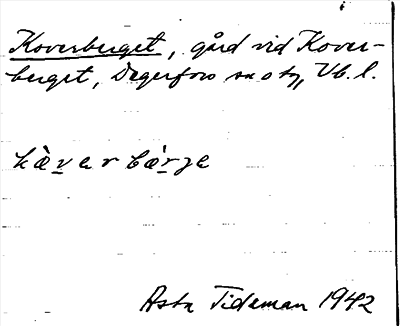 Koverberget, gård vid Kover-
berget, Degerfors sn o tg, Vb. l.
kὰvarbærje
Asta Tideman 1942